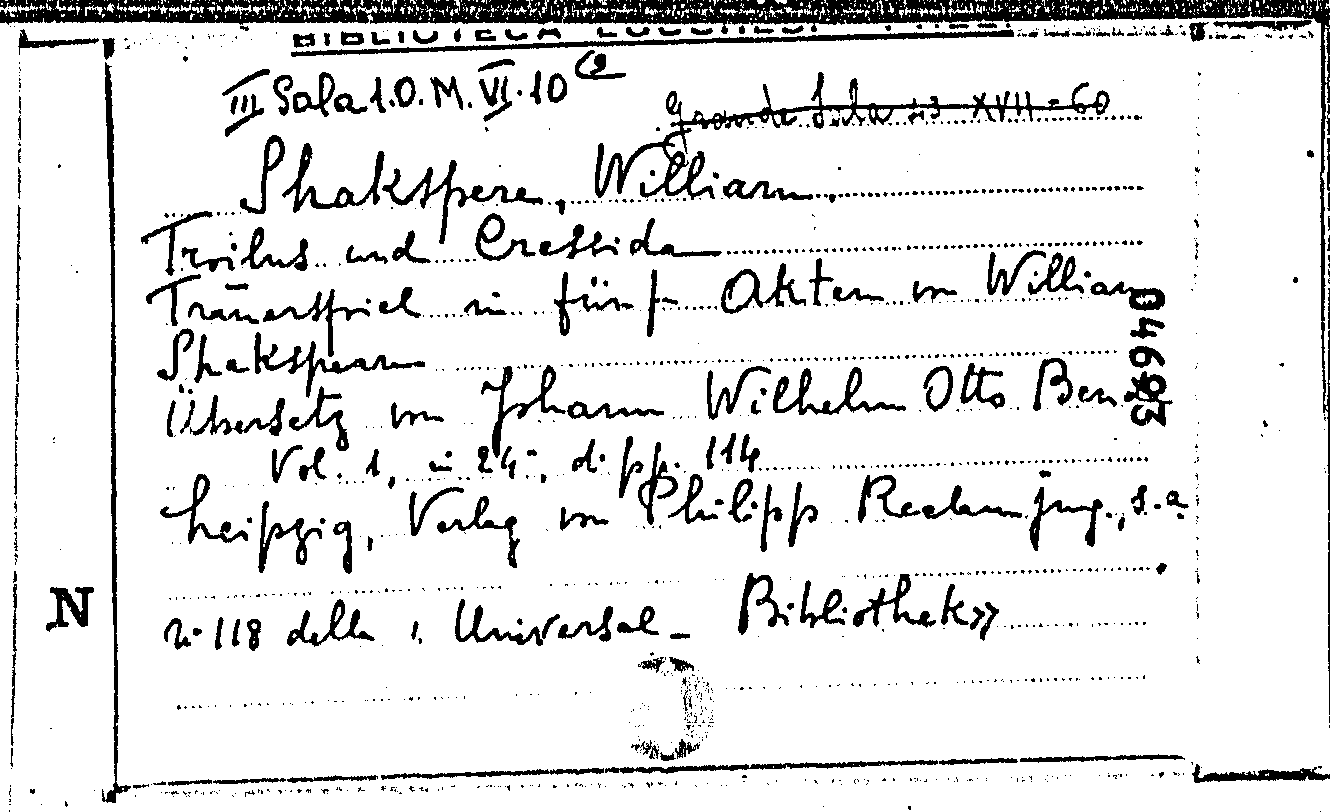 BIBLIOTECA LUCCHESI
III Sala 1.O.M.VI.10 (9
Grande Sala XVII=60
Shakspere, William.
Troilus und Cressida
Trauerspiel in fünf Akten von William
Shakspeare
Übersetz von Johann Wilhelm Otto Ben
Vol. 1, in 24°, di pp. 114
Leipzig, Verlag von Philipp Reclam jung., s.a.
n. 118 della « Universal - Bibliothek»
N
04693